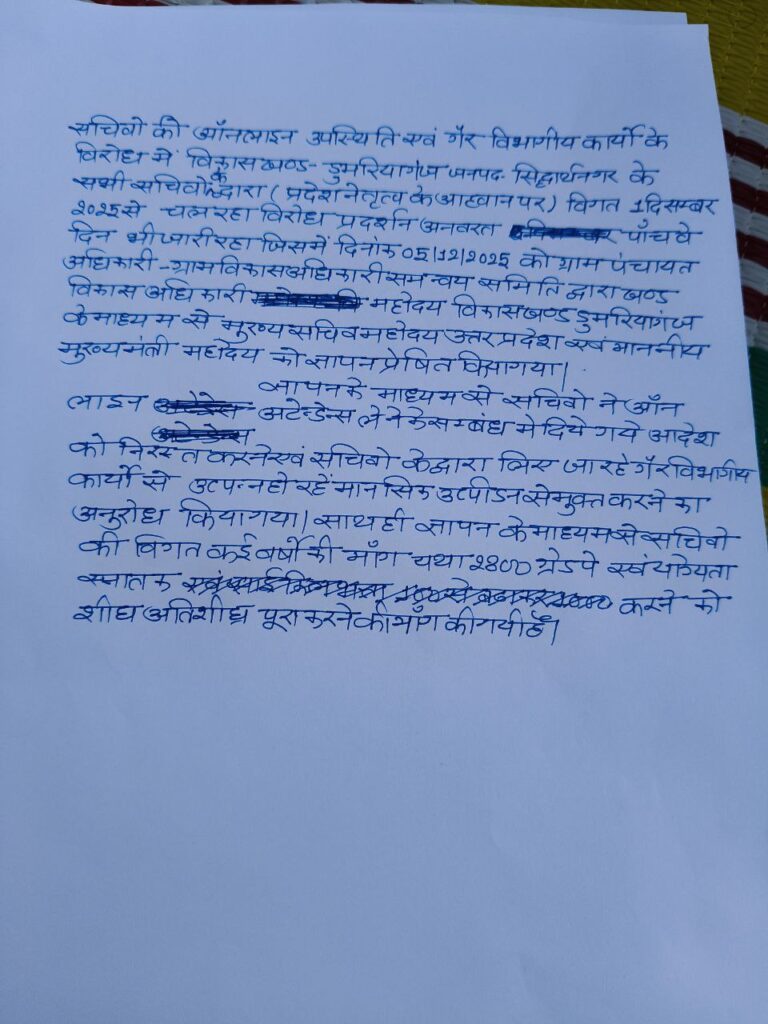 सचिवो की ऑनलाइन उपस्थिति एवं गैर विभागीय कार्यो के
विरोध में विकास खण्ड - डुमरियागंज जनपद सिद्धार्थनगर के
सभी सचिवो के द्वारा (प्रदेश नेतृत्व के आहवान पर) विगत 1 दिसम्बर
2025 से चल रहा विरोध प्रदर्शन अनवरत पाँचवे
दिन भी जारी रहा जिसमें दिनांक 05/12/2025 को ग्राम पंचायत
अधिकारी - ग्राम विकास अधिकारी समन्वय समिति द्वारा खण्ड
विकास अधिकारी महोदय विकास खण्ड डुमरियागंज
के माध्यम से मुख्य सचिव महोदय उत्तर प्रदेश एवं माननीय
मुख्यमंती महोदय को ज्ञापन प्रेषित किया गया।
ज्ञापन के माध्यम से सचिवो ने ऑन
लाइन अटेन्डेन्स लेने के सम्बंध मे दिये गये आदेश
को निरस्त करने एवं सचिवो के द्वारा लिए जा रहे गैर विभागीय
कार्यो से उत्पन्न हो रहें मानसिक उत्पीडन से मुक्त करने का
अनुरोध किया गया। साथ ही ज्ञापन के माध्यम से सचिवो
की विगत कई वर्षो की माँग यथा 2800 ग्रेड पे एवं योग्यता
स्नातक करने को
शीघ्र अतिशीघ्र पूरा करने की माँग की गयी है।